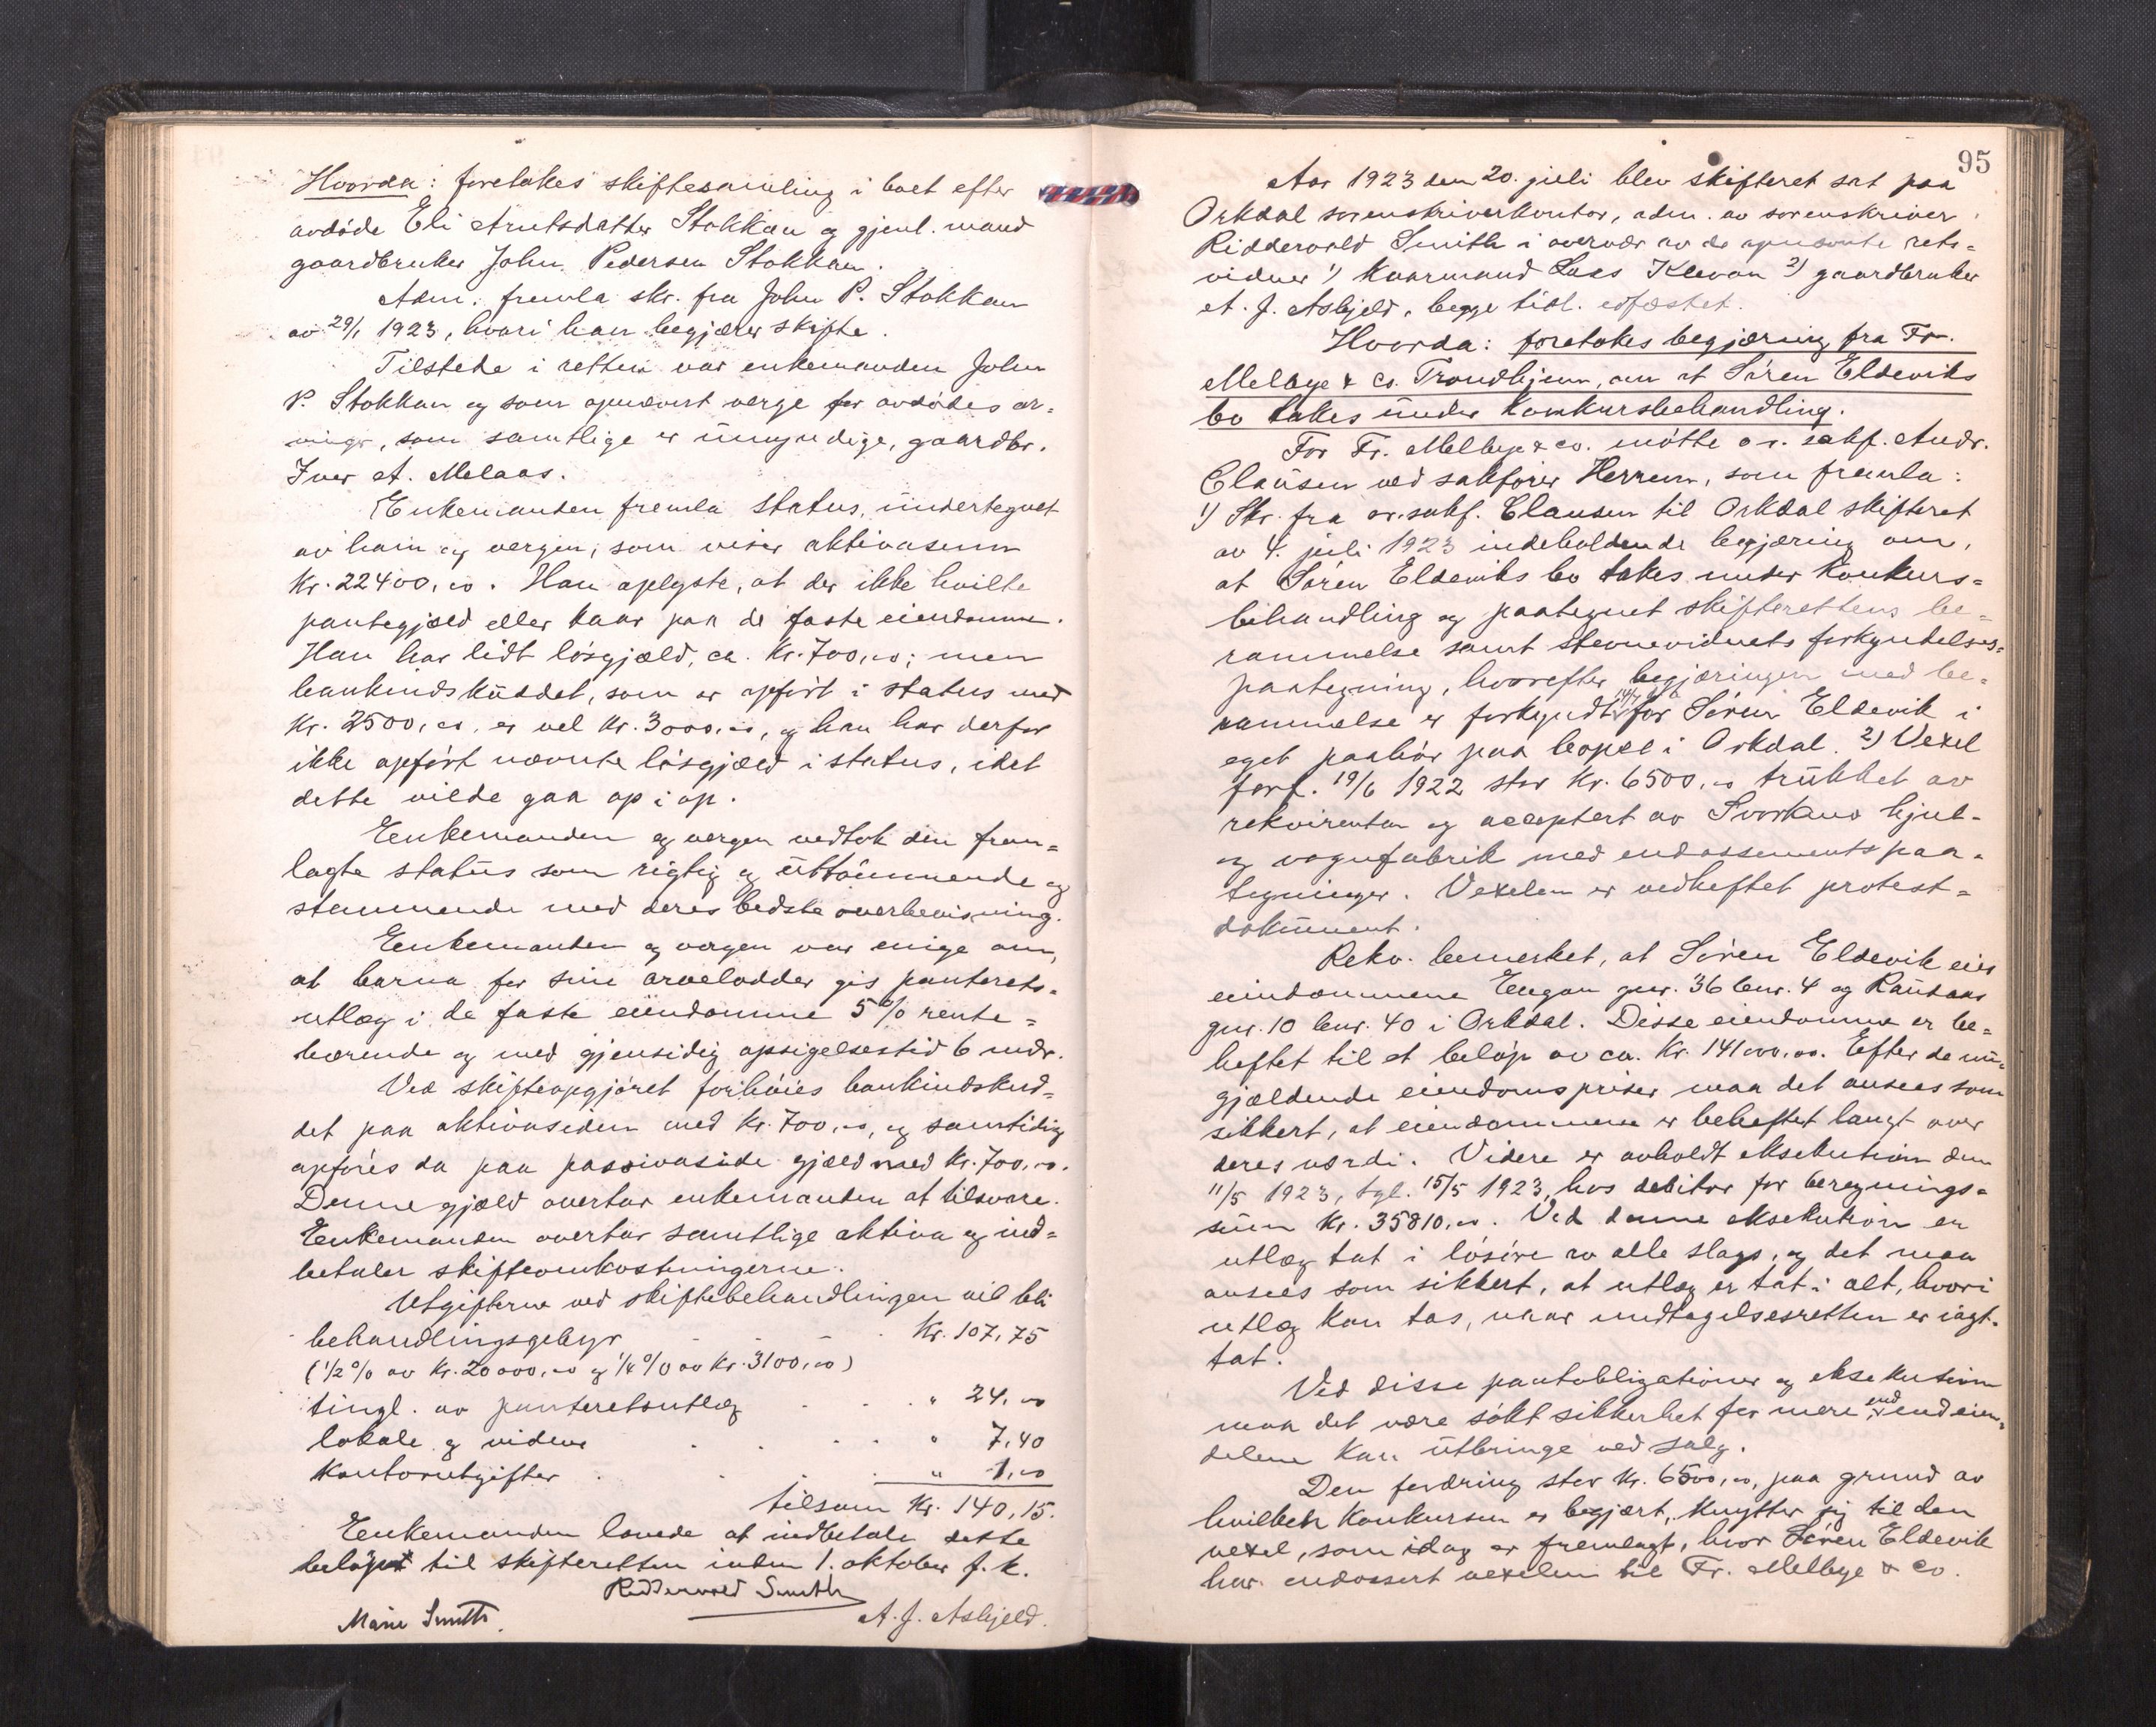 Hvorda: foretakes skiftesamling i boet efter
avdøde Eli Arntsdatter Stokkan og gjenl. mand
gaardbruker John Pedersen Stokkan.
Adm. fremla skr. fra John P. Stokkan
av 29/1 1923, hvori han begjærer skifte.
Tilstede i retten var enkemanden John
P. Stokkan og som opnævnt verge for avdødes ar-
vinger, som samtlige er umyndige, gaardbr.
Iver A. Melaas.
Enkemanden fremla status, undertegnet
av ham og vergen, som viser aktivasum
Kr. 22400,00. Han oplyste, at der ikke hvilte
pantegjæld eller kaar paa de faste eiendomme.
Han har lidt løsgjæld, ca. Kr. 700,00; men
bankindskuddet, som er opført i status med
Kr. 2500,00, er vel Kr. 3000,00, og han har derfor
ikke opført nævnte løsgjæld i status, idet
dette vilde gaa op i op.
Enkemanden og vergen vedtok den frem-
lagte status som rigtig og uttømmende og
stemmende med deres bedste overbevisning.
Enkemanden og vergen var enige om,
at barna for sine arvelodder gis panterets-
utlæg i de faste eiendomme 5% rente-
bærende og med gjensidig opsigelsestid 6 mdr.
Ved skifteopgjøret forhøies bankindskud-
det paa aktivasiden med Kr. 700,00, og samtidig
opføres da paa passivaside gjæld med Kr. 700,00.
Denne gjæld overtar enkemanden at tilsvare.
Enkemanden overtar samtlige aktiva og ind-
betaler skifteomkostningerne.
Utgifterne ved skiftebehandlingen vil bli
behandlingsgebyr . . . . Kr. 107,75
(1/2% av Kr. 20000,00 og 1/4% av Kr. 3100,00)
tingl. av panteretsutlæg . . . " 24,00
lokale og vidner . . . . " 7,40
Kontorutgifter . . . . " 1,00
tilsam Kr. 140,15.
Enkemanden lovede at indbetale dette
beløpet til skifteretten inden 1. oktober f. k.
Ridderwold Smith
Marie Smith. A. J. Asbjeld.
95
Aar 1923 den 20. juli blev skifteret sat paa
Orkdal sorenskriverkontor, adm. av sorenskriver
Ridderwold Smith i overvær av de opnævnte rets-
vidner 1) kaarmand Lars Klevan 2) gaardbruker
A. J. Asbjeld, begge tidl. edfæstet.
Hvorda: foretakes begjæring fra Fr.
Melbye & co. Trondhjem, om at Søren Eldeviks
bo takes under konkursbehandling.
For Fr. Melbye & co. møtte o.r. sakf. Andr.
Clausen ved sakfører Herrem, som fremla:
1) Skr. fra or.sakf. Clausen til Orkdal skifteret
av 4. juli 1923 indeholdende begjæring om,
at Søren Eldeviks bo takes under konkurs-
behandling og paategnet skifterettens be-
rammelse samt stevnevidnets forkyndelses-
paategning, hvorefter begjæringen med be-
rammelse er forkyndt 14/7 for Søren Eldevik i
eget paahør paa bopæl i Orkdal. 2) Vexel
forf. 19/6 1922 stor Kr. 6500,00 trukket av
rekvirenten og acceptert av Svorkmo hjul-
og vognfabrik med endossementspaa-
tegninger. Vexelen er vedheftet protest-
dokument.
Rekv. bemerket, at Søren Eldevik eier
eiendommene Engan gnr. 36 bnr. 4 og Rausaas
gnr. 10 bnr. 40 i Orkdal. Disse eiendomme er be-
heftet til et beløp av ca. Kr. 141000,00. Efter de nu-
gjældende eiendomspriser maa det ansees som
sikkert, at eiendommene er beheftet langt over
deres værdi. Videre er avholdt eksekution den
11/5 1923, tgl. 15/5 1923, hos debitor for beregnings-
sum Kr. 35810,00. Ved denne eksekution er
utlæg tat i løsøre av alle slags, og det maa
ansees som sikkert, at utlæg er tat i alt, hvori
utlæg kan tas, naar undtagelsesretten er iagt-
tat.
Ved disse pantobligationer og eksekution
maa det være søkt sikkerhet for mere end eien-
delene kan utbringe ved salg.
Den fordring stor Kr. 6500,00, paa grund av
hvilken konkursen er begjært, knytter sig til den
vexel, som idag er fremlagt, hvor Søren Eldevik
har endossert vexelen til Fr. Melbye & co.